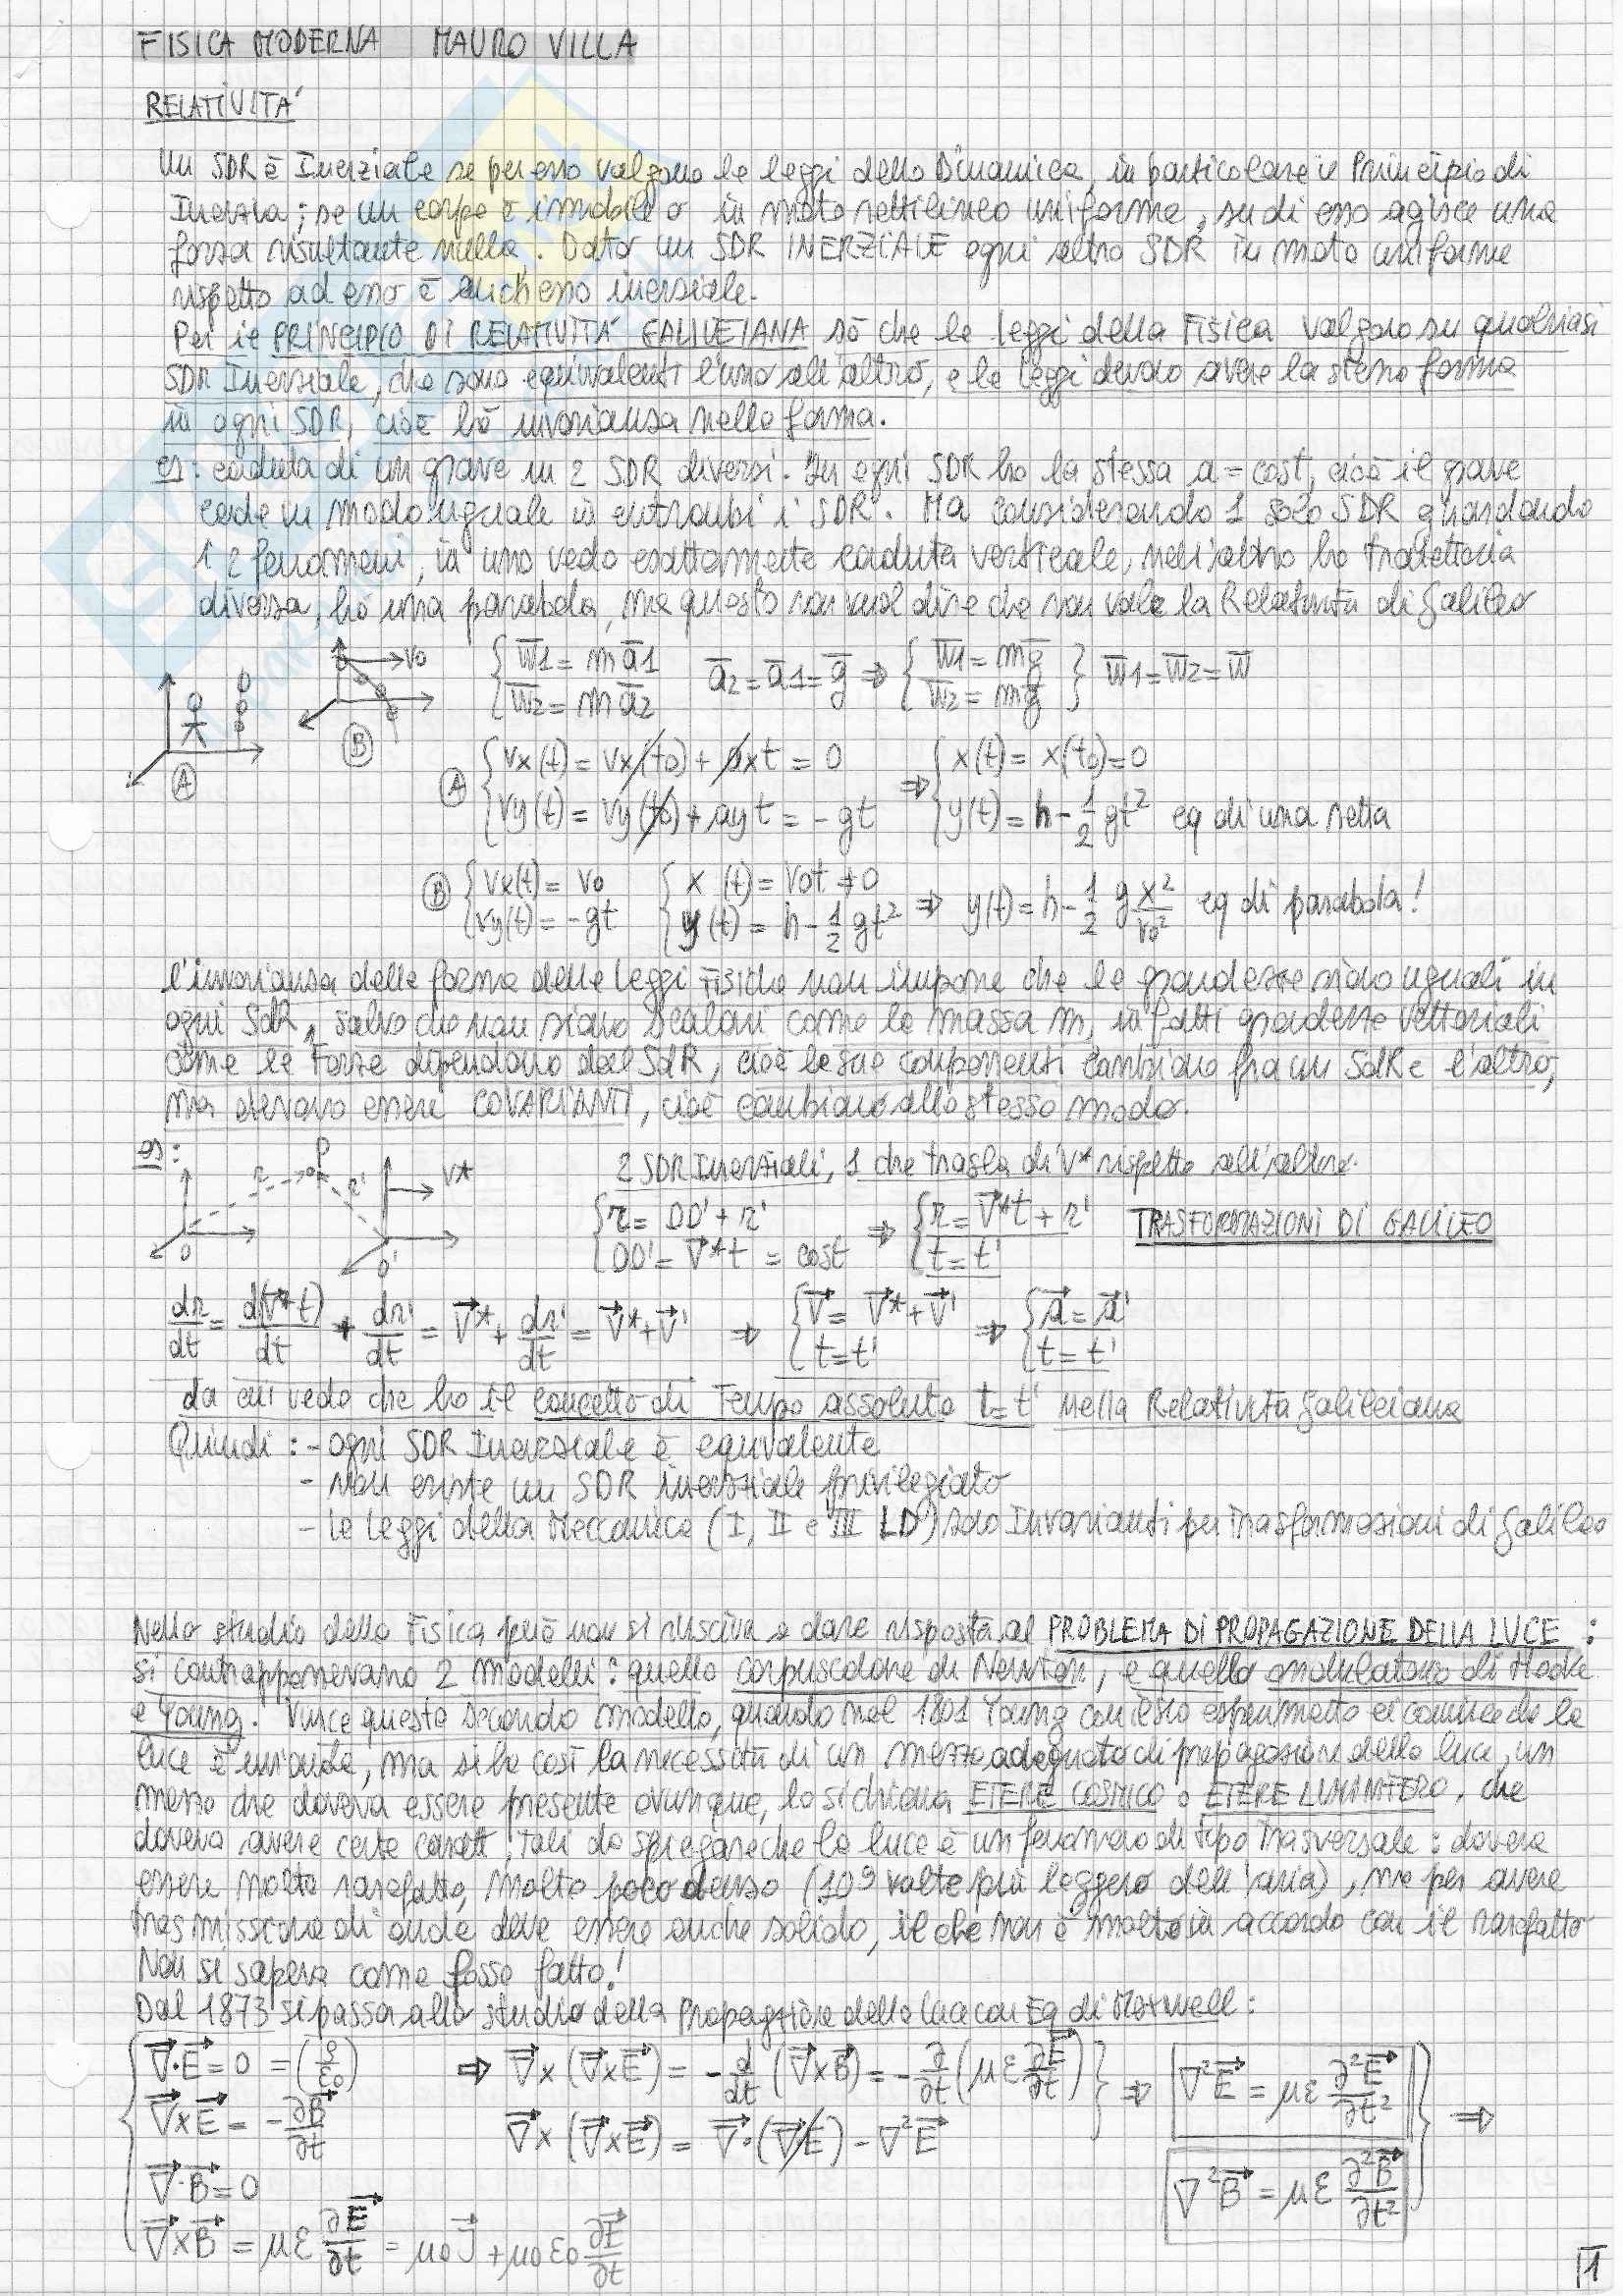 FISICA MODERNA MAURO VILLA
RELATIVITA'
Un SDR è Inerziale se per esso valgono le leggi della Dinamica, in particolare il Principio di
Inerzia; se un corpo è immobile o in moto rettilineo uniforme, su di esso agisce una
forza risultante nulla. Dato un SDR INERZIALE ogni altro SDR in moto uniforme
rispetto ad esso è anch'esso inerziale.
Per il PRINCIPIO DI RELATIVITÀ GALILEIANA so che le leggi della Fisica valgono su qualsiasi
SDR Inerziale, che sono equivalenti l'uno all'altro, e le leggi devono avere la stessa forma
in ogni SDR, cioè ho invarianza nella forma.
es: caduta di un grave in 2 SDR diversi. In ogni SDR ho la stessa a = cost, cioè il grave
cade in modo uguale in entrambi i SDR. Ma considerando 1 solo SDR guardando
i 2 fenomeni, in uno vedo esattamente caduta verticale, nell'altro ho traiettoria
diversa, ho una parabola, ma questo non vuol dire che non vale la Relatività di Galileo
V0
{ W̅1 = m a̅1
W̅2 = m a̅2
a̅2 = a̅1 = g̅ ⇒ { W̅1 = mg̅
W̅2 = mg̅ } W̅1 = W̅2 = W̅
A B
A { Vx(t) = Vx(t0) + axt = 0 ⇒ { x(t) = x(t0) = 0
Vy(t) = Vy(t0) + ayt = -gt y(t) = h - 1/2 gt² eq di una retta
B { Vx(t) = V0 { x(t) = V0t ≠ 0
Vy(t) = -gt y(t) = h - 1/2 gt² ⇒ y(t) = h - 1/2 g x²/V0² eq di parabola!
l'invarianza della forma delle leggi fisiche non impone che le grandezze siano uguali in
ogni SdR, salvo che non siano scalari come la massa m, infatti grandezze vettoriali
come le Forze dipendono dal SdR, cioè le sue componenti cambiano fra un SdR e l'altro,
ma devono essere COVARIANTI, cioè cambiano allo stesso modo.
es:
P r r' V* O O'
2 SDR Inerziali, 1 che trasla di V* rispetto all'altro.
{ r = OO' + r' ⇒ { r = V⃗*t + r' TRASFORMAZIONI DI GALILEO
OO' = V⃗*t = cost t = t'
dr/dt = d(V⃗*t)/dt + dr'/dt = V⃗* + dr'/dt = V⃗* + V⃗' ⇒ { V⃗ = V⃗* + V⃗' ⇒ { a⃗ = a⃗'
t = t' t = t'
da cui vedo che ho il concetto di Tempo assoluto t = t' nella Relatività Galileiana
Quindi: - ogni SDR Inerziale è equivalente
- non esiste un SDR inerziale privilegiato
- le leggi della Meccanica (I, II e III LD) sono Invarianti per Trasformazioni di Galileo
Nello studio della Fisica però non si riusciva a dare risposta al PROBLEMA DI PROPAGAZIONE DELLA LUCE:
si contrapponevano 2 modelli: quello corpuscolare di Newton, e quello ondulatorio di Hooke
e Young. Vince questo secondo modello, quando nel 1801 Young con il suo esperimento ci convince che la
luce è un'onda, ma si ha così la necessità di un mezzo adeguato di propagazione della luce, un
mezzo che doveva essere presente ovunque, lo si chiama ETERE COSMICO o ETERE LUMINIFERO, che
doveva avere certe caratt, tali da spiegare che la luce è un fenomeno di tipo trasversale: doveva
essere molto rarefatto, molto poco denso (10⁹ volte più leggero dell'aria), ma per avere
trasmissione di onda deve essere anche solido, il che non è molto in accordo con il rarefatto
Non si sapeva come fosse fatto!
Dal 1873 si passa allo studio della Propagazione della luce con Eq di Maxwell:
{ ∇⃗·E⃗ = 0 = (ρ/ε0) ⇒ ∇⃗×(∇⃗×E⃗) = -d/dt (∇⃗×B⃗) = -∂/∂t (με ∂E⃗/∂t) } ⇒ ∇²E⃗ = με ∂²E⃗/∂t² } ⇒
∇⃗×E⃗ = -∂B⃗/∂t ∇⃗×(∇⃗×E⃗) = ∇⃗·(∇⃗E⃗) - ∇²E⃗
∇⃗·B⃗ = 0 ∇²B⃗ = με ∂²B⃗/∂t²
∇⃗×B⃗ = με ∂E⃗/∂t = μ0 J⃗ + μ0 ε0 ∂E⃗/∂t
1